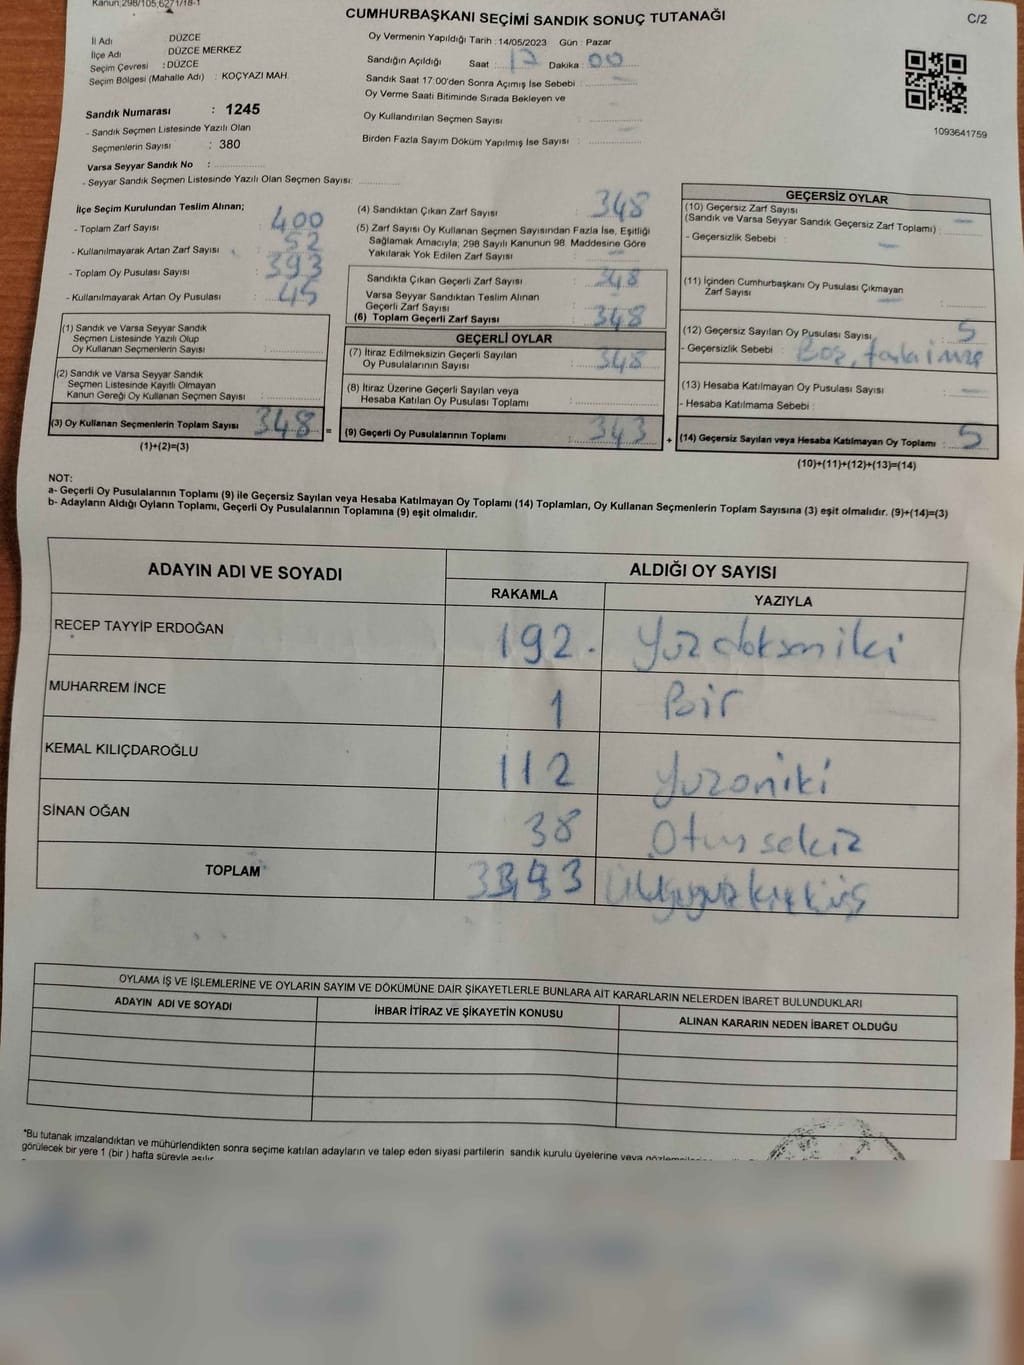 Kanun;298/105,6271/18-1
CUMHURBAŞKANI SEÇİMİ SANDIK SONUÇ TUTANAĞI
C/2
İl Adı : DÜZCE
İlçe Adı : DÜZCE MERKEZ
Seçim Çevresi : DÜZCE
Seçim Bölgesi (Mahalle Adı) : KOÇYAZI MAH.
Sandık Numarası : 1245
- Sandık Seçmen Listesinde Yazılı Olan
Seçmenlerin Sayısı : 380
Varsa Seyyar Sandık No :
- Seyyar Sandık Seçmen Listesinde Yazılı Olan Seçmen Sayısı:
Oy Vermenin Yapıldığı Tarih : 14/05/2023 Gün : Pazar
Sandığın Açıldığı Saat : 17 Dakika : 00
Sandık Saat 17:00'den Sonra Açımış İse Sebebi :
Oy Verme Saati Bitiminde Sırada Bekleyen ve
Oy Kullandırılan Seçmen Sayısı :
Birden Fazla Sayım Döküm Yapılmış İse Sayısı :
1093641759
İlçe Seçim Kurulundan Teslim Alınan;
- Toplam Zarf Sayısı : 400
- Kullanılmayarak Artan Zarf Sayısı : 52
- Toplam Oy Pusulası Sayısı : 393
- Kullanılmayarak Artan Oy Pusulası : 45
(1) Sandık ve Varsa Seyyar Sandık
Seçmen Listesinde Yazılı Olup
Oy Kullanan Seçmenlerin Sayısı :
(2) Sandık ve Varsa Seyyar Sandık
Seçmen Listesinde Kayıtlı Olmayan
Kanun Gereği Oy Kullanan Seçmen Sayısı :
(3) Oy Kullanan Seçmenlerin Toplam Sayısı : 348 =
(1)+(2)=(3)
(4) Sandıktan Çıkan Zarf Sayısı : 348
(5) Zarf Sayısı Oy Kullanan Seçmen Sayısından Fazla İse, Eşitliği
Sağlamak Amacıyla; 298 Sayılı Kanunun 98. Maddesine Göre
Yakılarak Yok Edilen Zarf Sayısı :
Sandıkta Çıkan Geçerli Zarf Sayısı : 348
Varsa Seyyar Sandıktan Teslim Alınan
Geçerli Zarf Sayısı :
(6) Toplam Geçerli Zarf Sayısı : 348
GEÇERLİ OYLAR
(7) İtiraz Edilmeksizin Geçerli Sayılan
Oy Pusulalarının Sayısı : 348
(8) İtiraz Üzerine Geçerli Sayılan veya
Hesaba Katılan Oy Pusulası Toplamı :
(9) Geçerli Oy Pusulalarının Toplamı : 343 +
GEÇERSİZ OYLAR
(10) Geçersiz Zarf Sayısı
(Sandık ve Varsa Seyyar Sandık Geçersiz Zarf Toplamı) : —
- Geçersizlik Sebebi : —
(11) İçinden Cumhurbaşkanı Oy Pusulası Çıkmayan
Zarf Sayısı :
(12) Geçersiz Sayılan Oy Pusulası Sayısı : 5
- Geçersizlik Sebebi : Boş, fazla imza
(13) Hesaba Katılmayan Oy Pusulası Sayısı : —
- Hesaba Katılmama Sebebi :
(14) Geçersiz Sayılan veya Hesaba Katılmayan Oy Toplamı : 5
(10)+(11)+(12)+(13)=(14)
NOT:
a- Geçerli Oy Pusulalarının Toplamı (9) ile Geçersiz Sayılan veya Hesaba Katılmayan Oy Toplamı (14) Toplamları, Oy Kullanan Seçmenlerin Toplam Sayısına (3) eşit olmalıdır. (9)+(14)=(3)
b- Adayların Aldığı Oyların Toplamı, Geçerli Oy Pusulalarının Toplamına (9) eşit olmalıdır.
ADAYIN ADI VE SOYADI
ALDIĞI OY SAYISI
RAKAMLA YAZIYLA
RECEP TAYYİP ERDOĞAN 192. Yüzdoksaniki
MUHARREM İNCE 1 Bir
KEMAL KILIÇDAROĞLU 112 Yüzoniki
SİNAN OĞAN 38 Otuzsekiz
TOPLAM 343
OYLAMA İŞ VE İŞLEMLERİNE VE OYLARIN SAYIM VE DÖKÜMÜNE DAİR ŞİKAYETLERLE BUNLARA AİT KARARLARIN NELERDEN İBARET BULUNDUKLARI
ADAYIN ADI VE SOYADI İHBAR İTİRAZ VE ŞİKAYETİN KONUSU ALINAN KARARIN NEDEN İBARET OLDUĞU
*Bu tutanak imzalandıktan ve mühürlendikten sonra seçime katılan adayların ve talep eden siyasi partilerin sandık kurulu üyelerine veya
görülecek bir yere 1 (bir) hafta süreyle asılır.